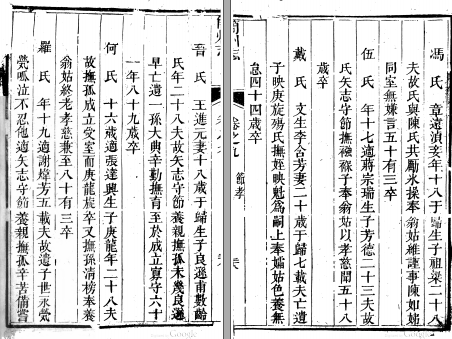 馮氏 章遺湞妾年十八于歸生子祖梁二十八
夫故氏與陳氏共勵氷操奉翁姑維謹事陳如姊
同室無嫌言五十有三卒
伍氏 年十七適蔣宗瑞生子芳德二十三夫故
氏矢志守節撫襁蘇子奉翁姑以孝慈聞五十八
歲卒
戴氏 文生李合芳妻二十歲于歸七載夫亡遺
子映庚旋殤氏撫姪映魁爲嗣上奉孀姑色養無
怠四十四歲卒
卷之九 節孝
晋氏 王進元妻十八歲于歸生子良遜甫數齡
氏年二十八夫故矢志守節養親撫孤未幾良遜
早亡遺一孫大典辛勤撫育至於成立寡守六十
年八十九歲卒
何氏 十六歲適張達興生子庚龍年二十八夫
故撫孤成立受室而庚龍旋卒又撫孫清榜奉養
翁姑終老孝慈兼至八十有三卒
羅氏 年十九適謝煒芳五載夫故遺子世永煢
煢呱泣不忍他適矢志守節養親撫孤辛苦備嘗
Google
Google